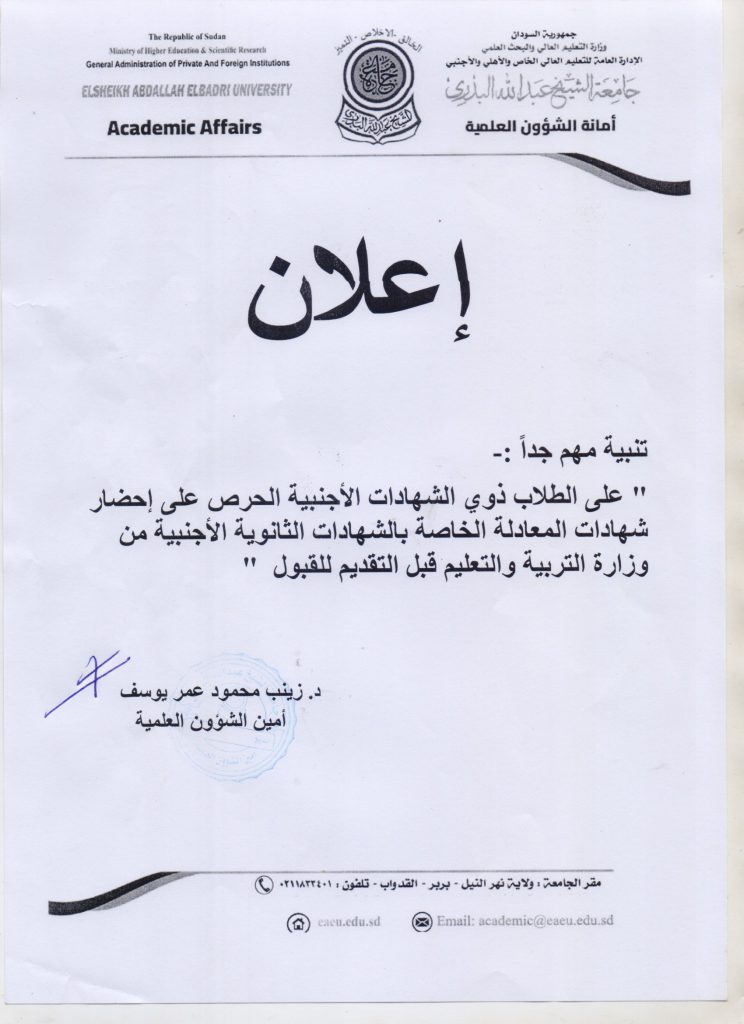 The Republic of Sudan
Ministry of Higher Education & Scientific Research
General Administration of Private And Foreign Institutions
ELSHEIKH ABDALLAH ELBADRI UNIVERSITY
Academic Affairs
جمهورية السودان
وزارة التعليم العالي والبحث العلمي
الإدارة العامة للتعليم العالي الخاص والأهلي والأجنبي
جامعة الشيخ عبدالله البدري
أمانة الشؤون العلمية
إعلان
تنبية مهم جداً :-
" على الطلاب ذوي الشهادات الأجنبية الحرص على إحضار
شهادات المعادلة الخاصة بالشهادات الثانوية الأجنبية من
وزارة التربية والتعليم قبل التقديم للقبول "
د. زينب محمود عمر يوسف
أمين الشؤون العلمية
مقر الجامعة : ولاية نهر النيل - بربر - القدواب - تلفون : ٠٢١١٨٢٢٤٠١
eaeu.edu.sd
Email: academic@eaeu.edu.sd